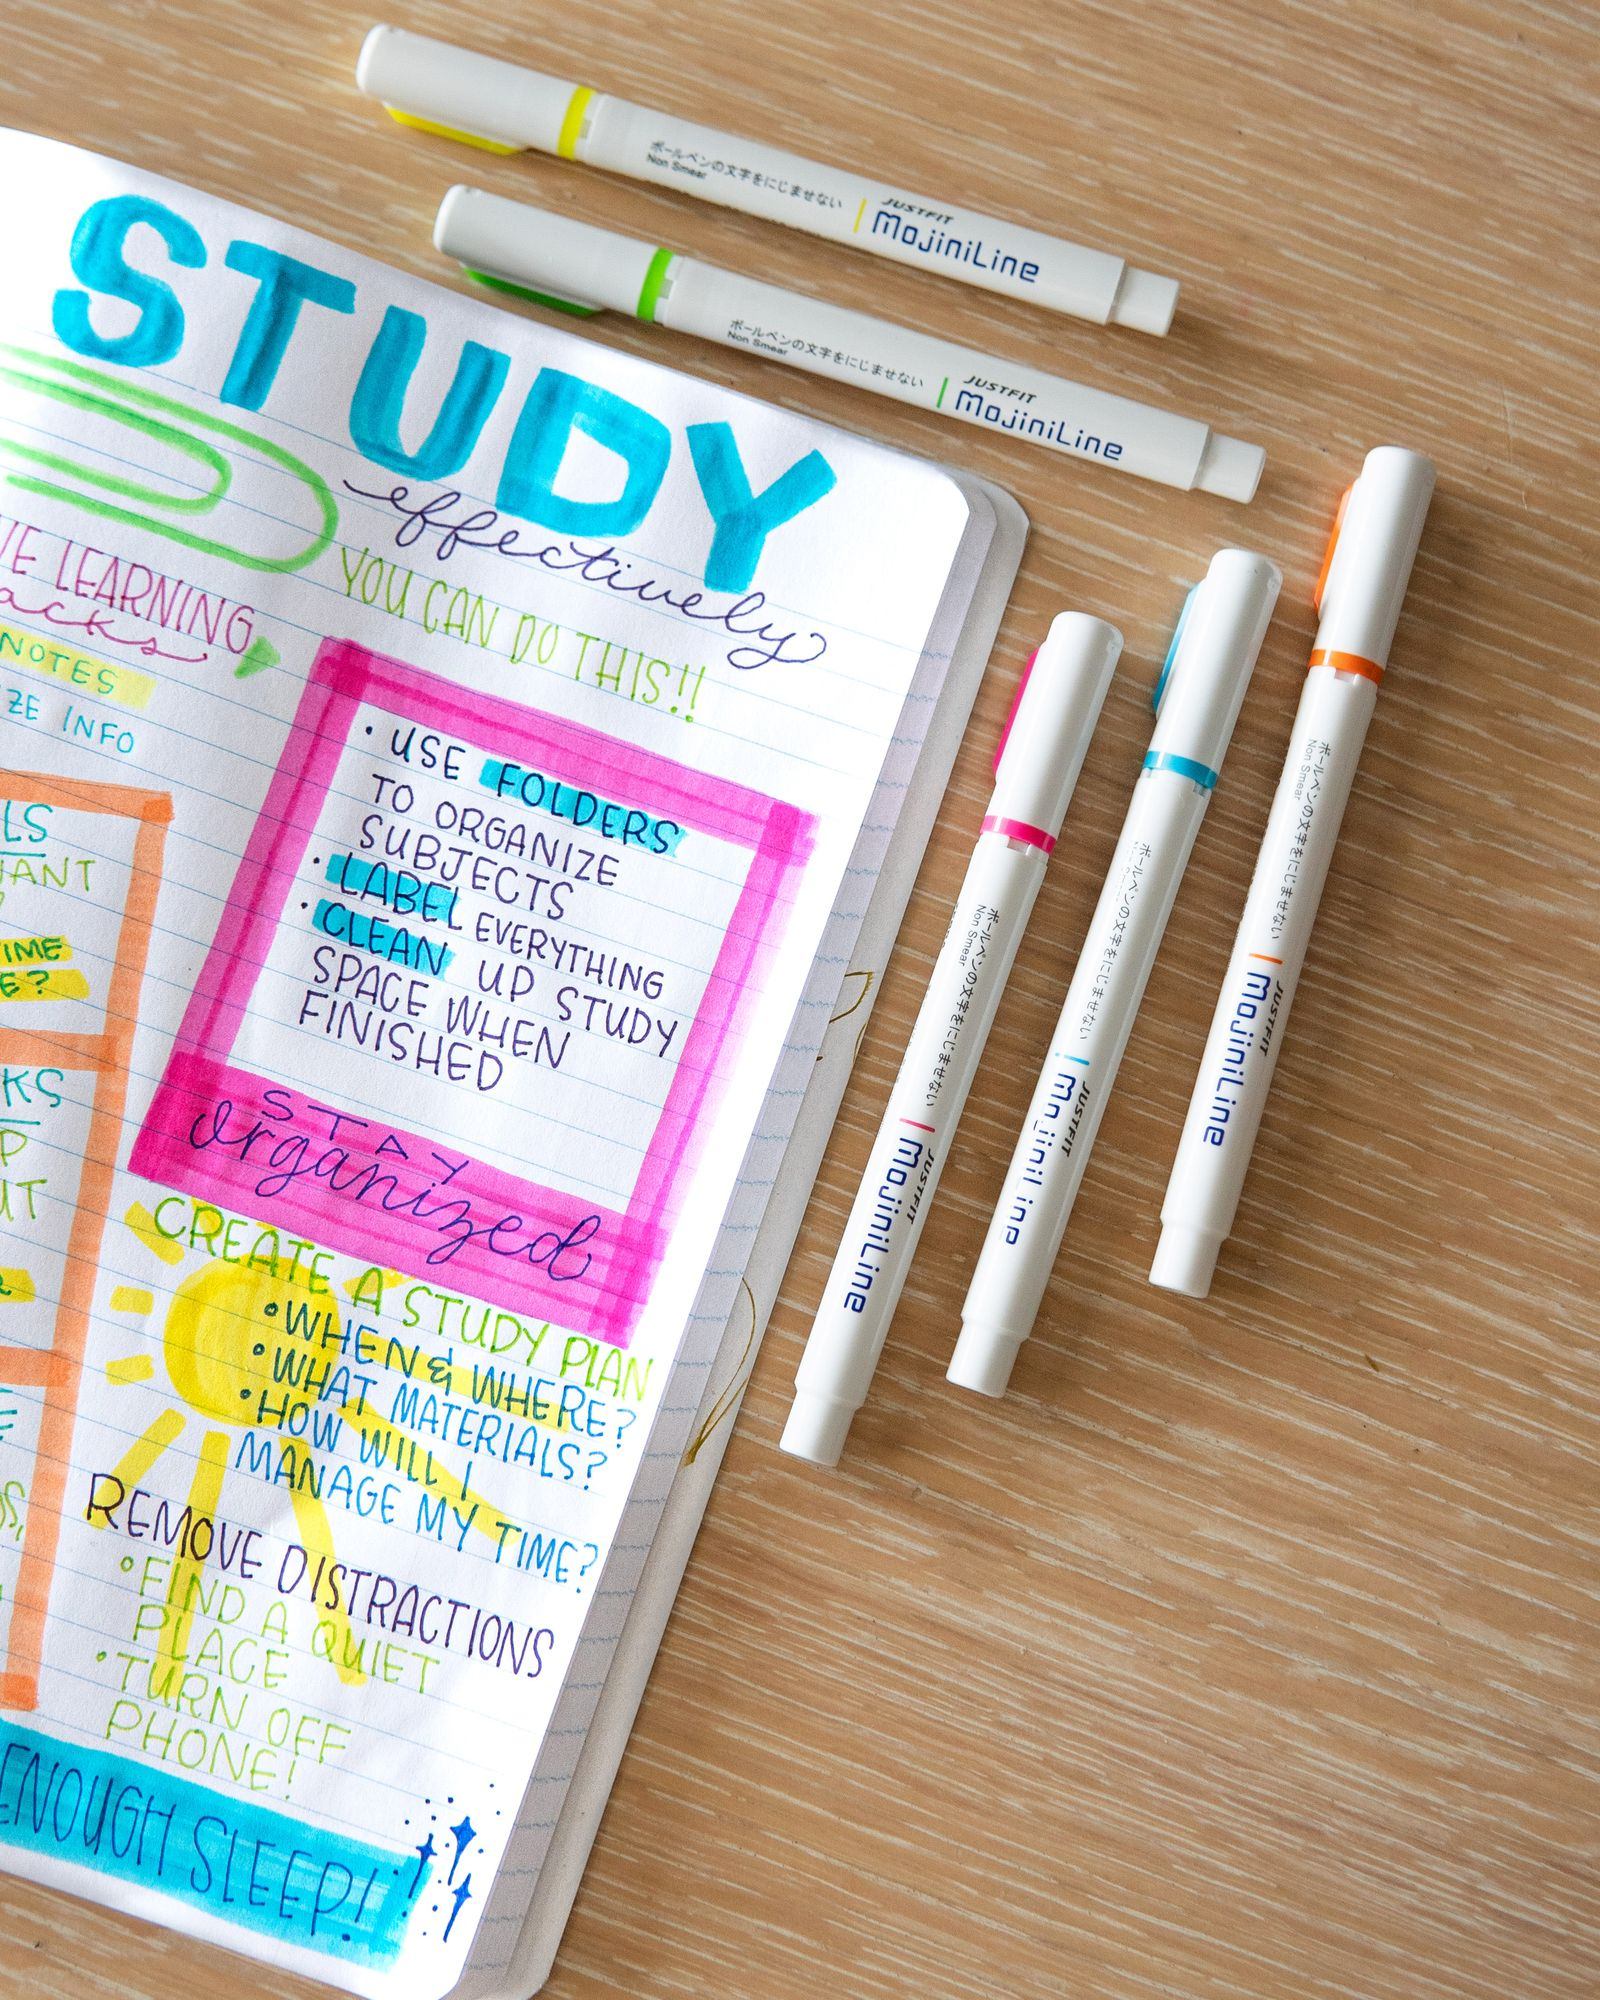 STUDY
effectively
YOU CAN DO THIS!!
LEARNING
NOTES
INFO
• USE FOLDERS
TO ORGANIZE
SUBJECTS
• LABEL EVERYTHING
• CLEAN UP STUDY
SPACE WHEN
FINISHED
STAY
organized
CREATE A STUDY PLAN
• WHEN & WHERE?
• WHAT MATERIALS?
• HOW WILL I
MANAGE MY TIME?
REMOVE DISTRACTIONS
• FIND A QUIET
PLACE
• TURN OFF
PHONE!
ENOUGH SLEEP!
ボールペンの文字をにじませない
Non Smear
JUSTFIT
MojiniLine
ボールペンの文字をにじませない
Non Smear
JUSTFIT
MojiniLine
ボールペンの文字をにじませない
Non Smear
JUSTFIT
MojiniLine
ボールペンの文字をにじませない
JUSTFIT
MojiniLine
ボールペンの文字をにじませない
Non Smear
JUSTFIT
MojiniLine